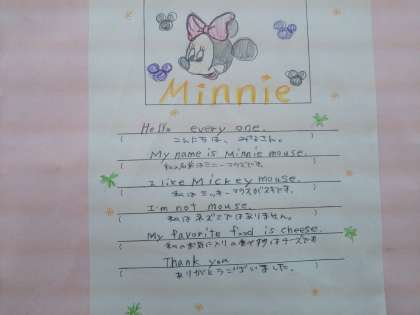 Minnie
Hello every one.
(こんにちは、みなさん。)
My name is Minnie mouse.
(私の名前はミニーマウスです。)
I like Mickey mouse.
(私はミッキーマウスがスキです。)
I'm not mouse.
(私はネズミではありません。)
My favorite food is cheese.
(私のお気に入りの食べ物はチーズです)
Thank you
(ありがとうございました。)